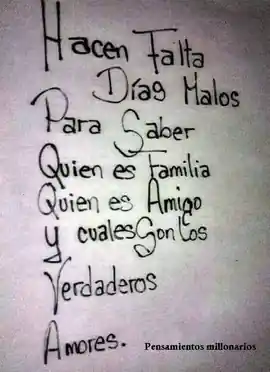 Hacen Falta
Días Malos
Para Saber
Quien es Familia
Quien es Amigo
y cuales Son los
Verdaderos
Amores.
Pensamientos millonarios